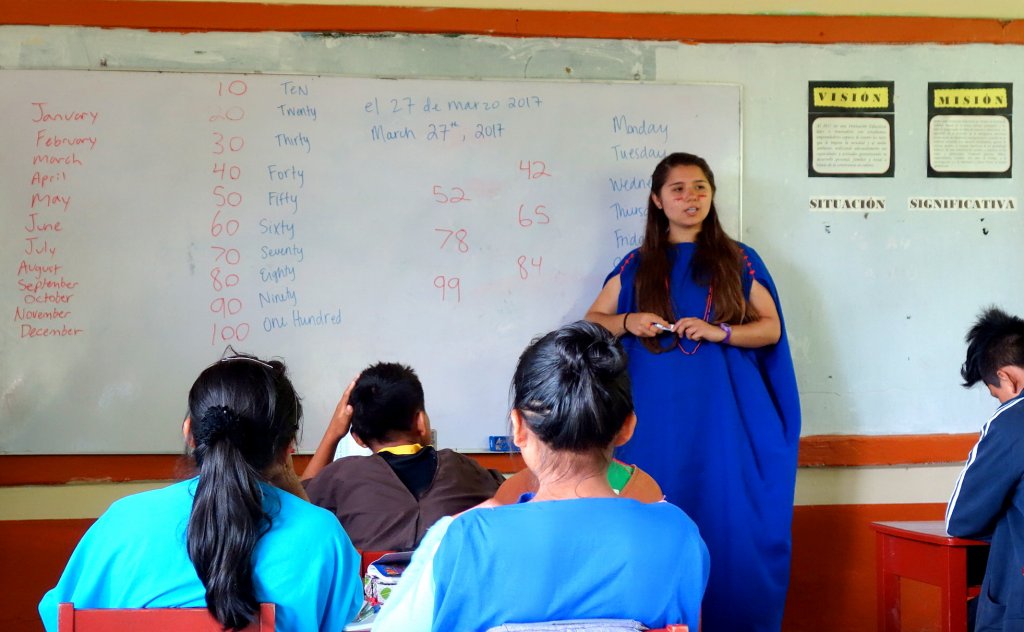 January
February
March
April
May
June
July
August
September
October
November
December
10 Ten
20 Twenty
30 Thirty
40 Forty
50 Fifty
60 Sixty
70 Seventy
80 Eighty
90 Ninety
100 One Hundred
el 27 de marzo 2017
March 27th, 2017
42
52
65
78
84
99
Monday
Tuesday
Wedne
Thurs
Frida
VISIÓN
MISIÓN
SITUACIÓN SIGNIFICATIVA